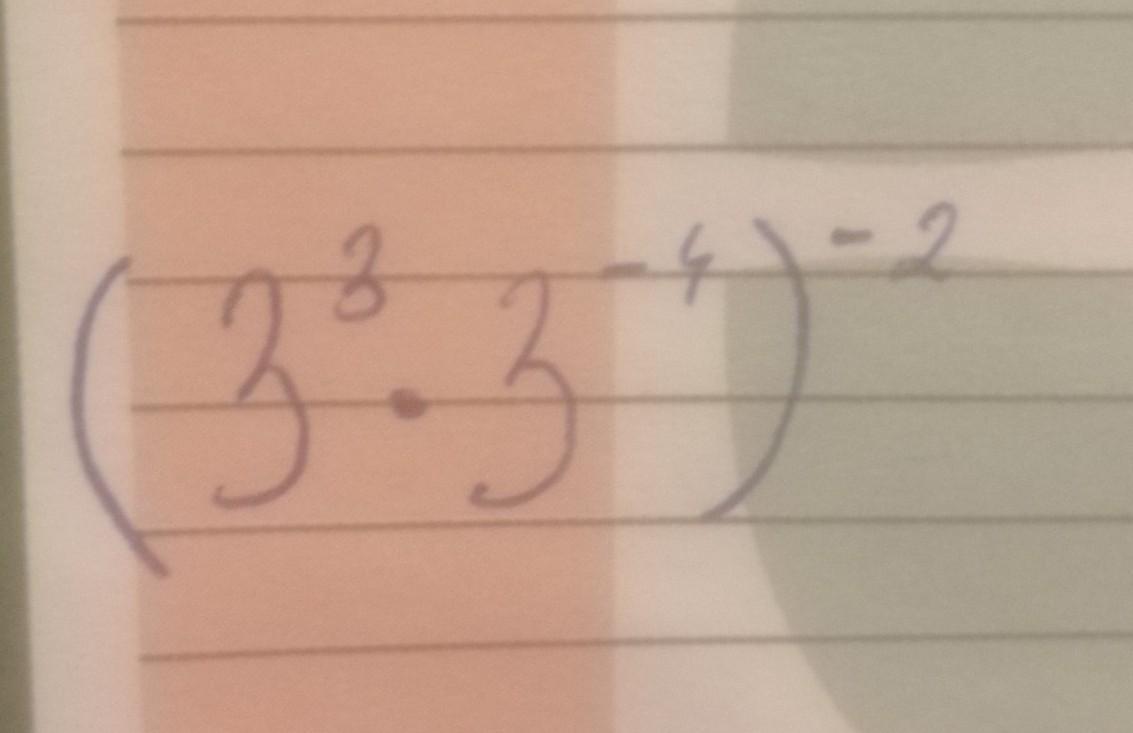 (3³ · 3⁻⁴)⁻²